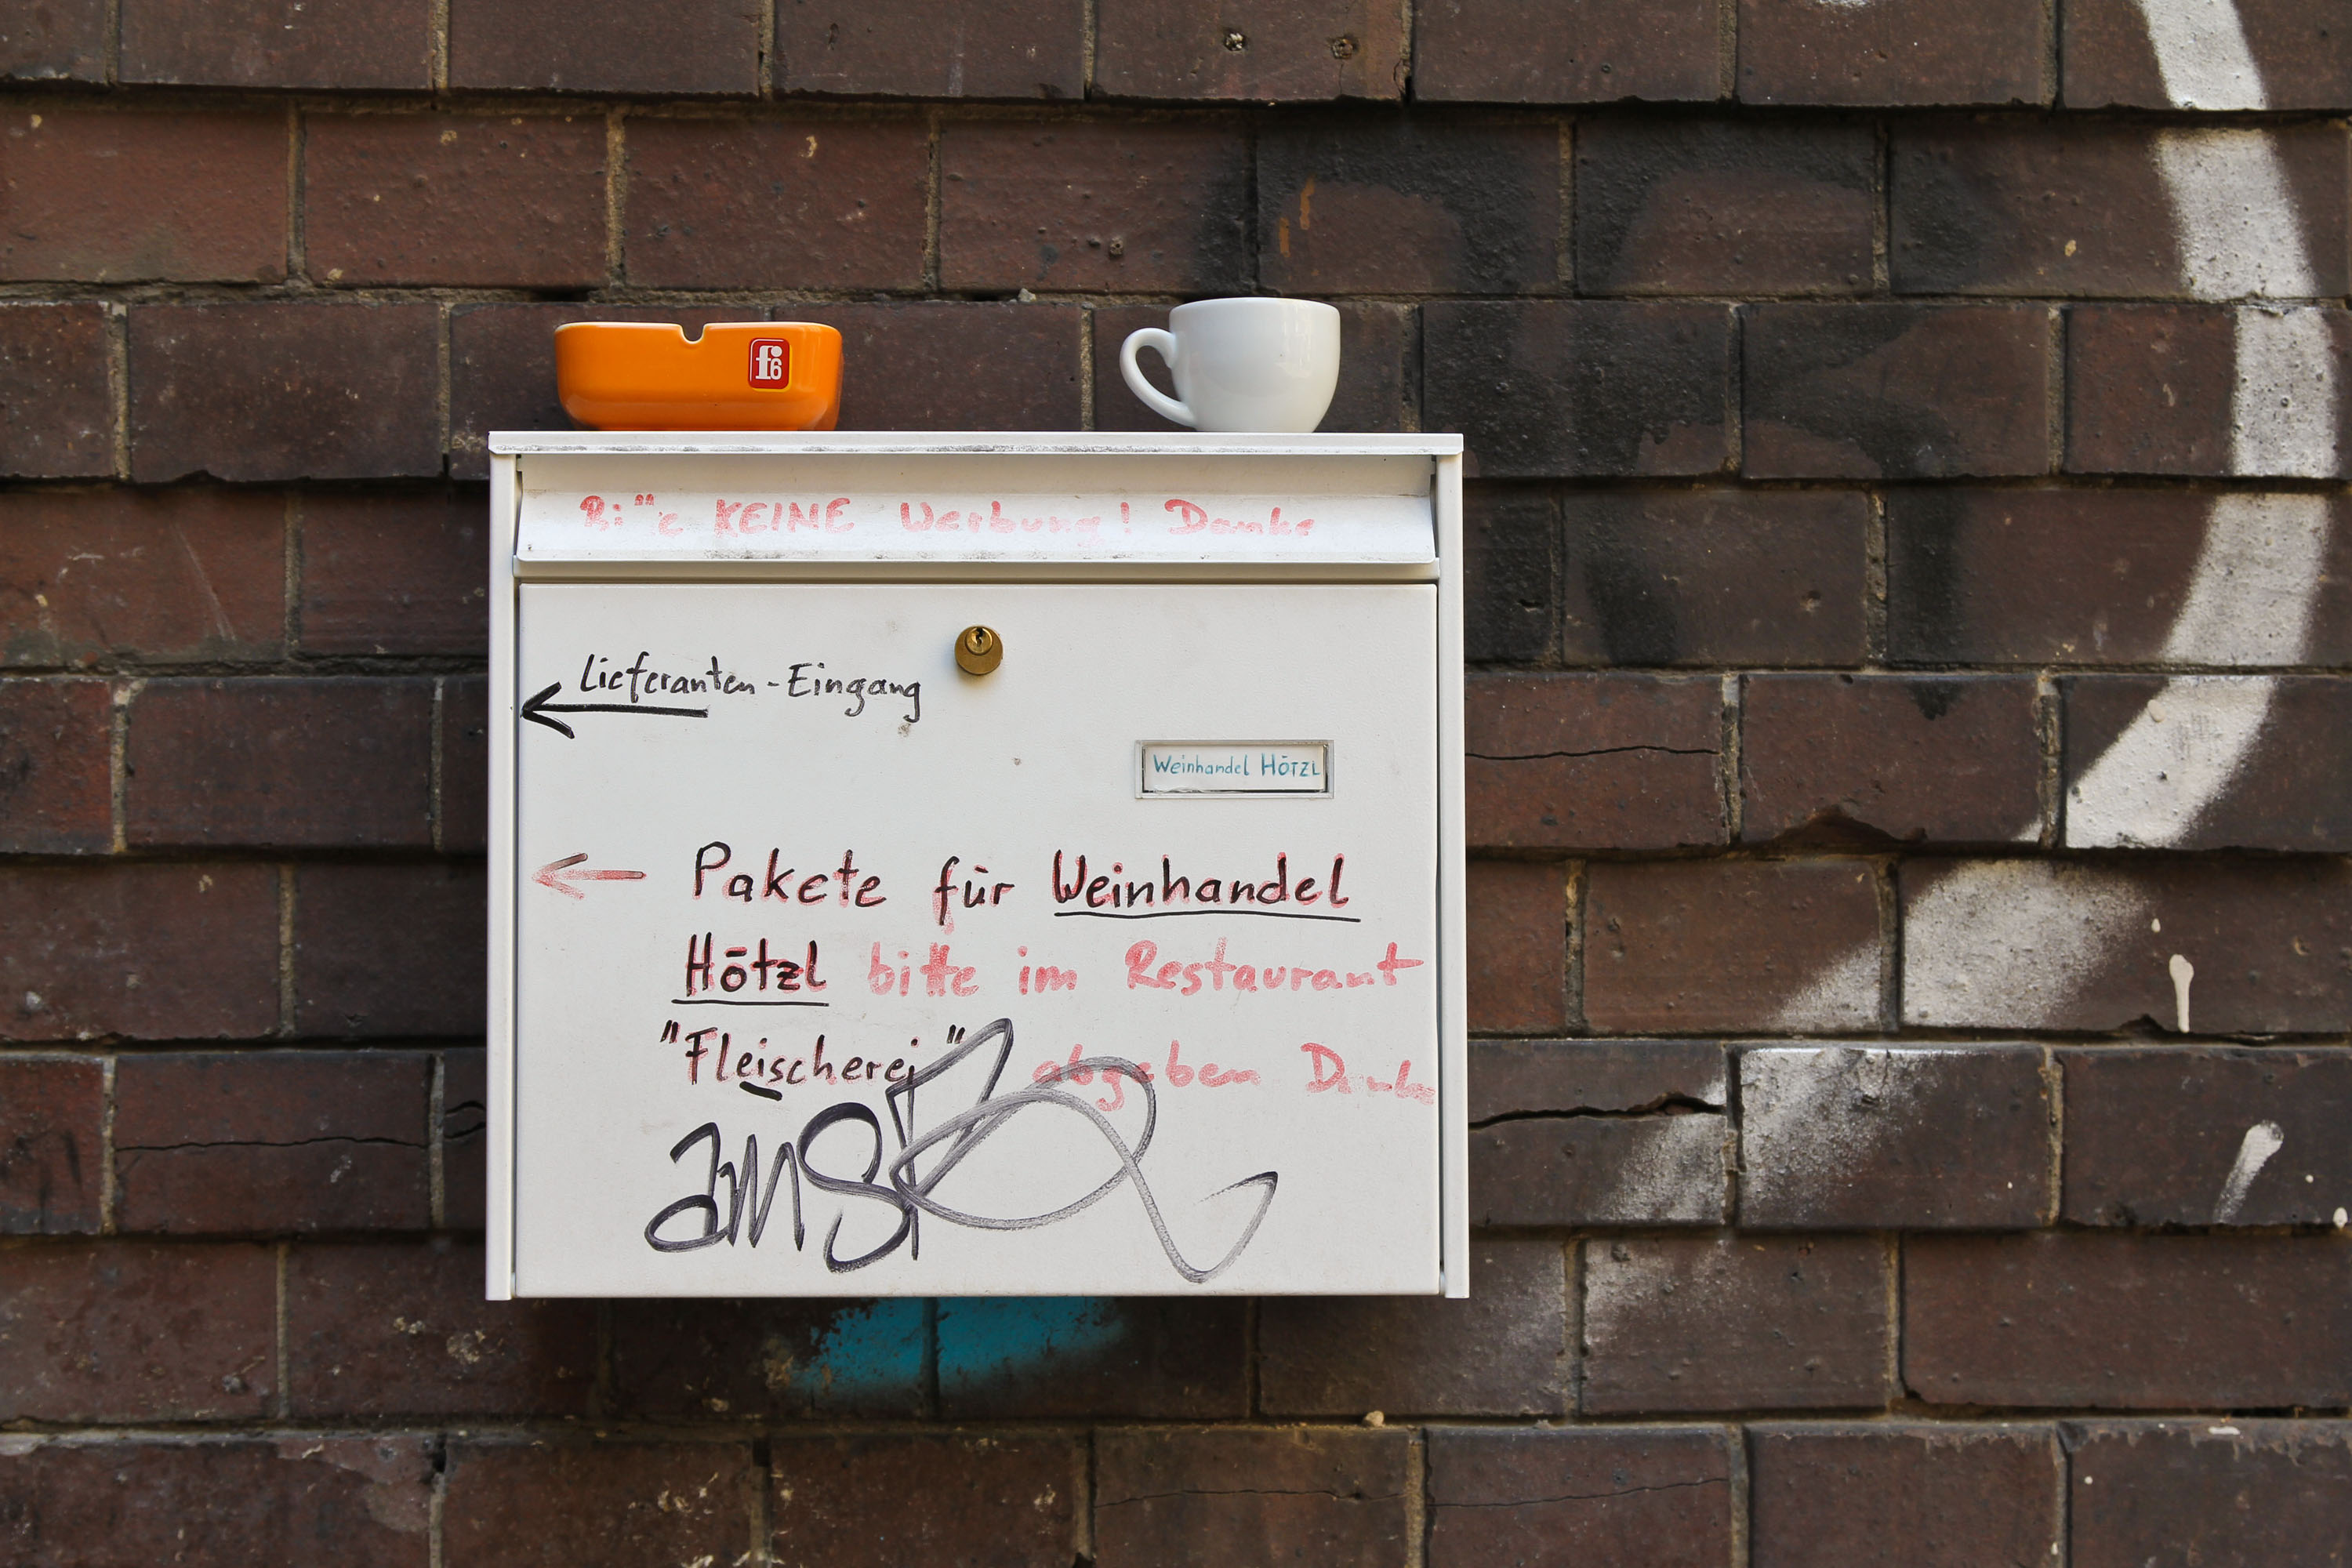 f6
Bitte KEINE Werbung! Danke
Lieferanten-Eingang
Weinhandel HÖTZL
Pakete für Weinhandel
Hötzl bitte im Restaurant
"Fleischerei" abgeben Danke